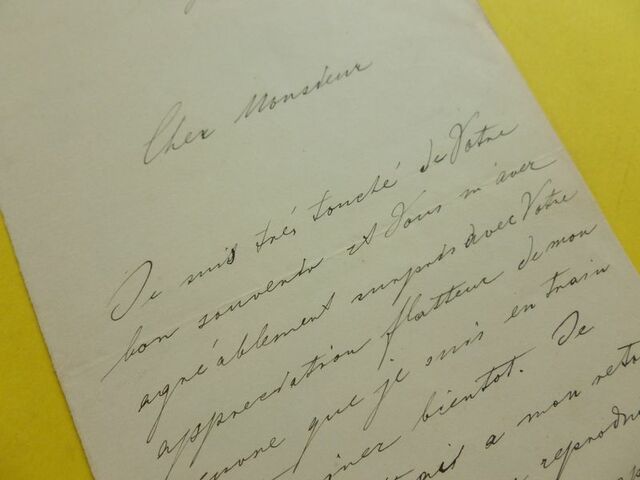 Cher Monsieur
Je suis trés touché de Votre
bon souvenir et Vous m'avez
agréablement surpris avec Votre
appreciation flatteur de mon
que je suis en train
bientot. Je
a mon